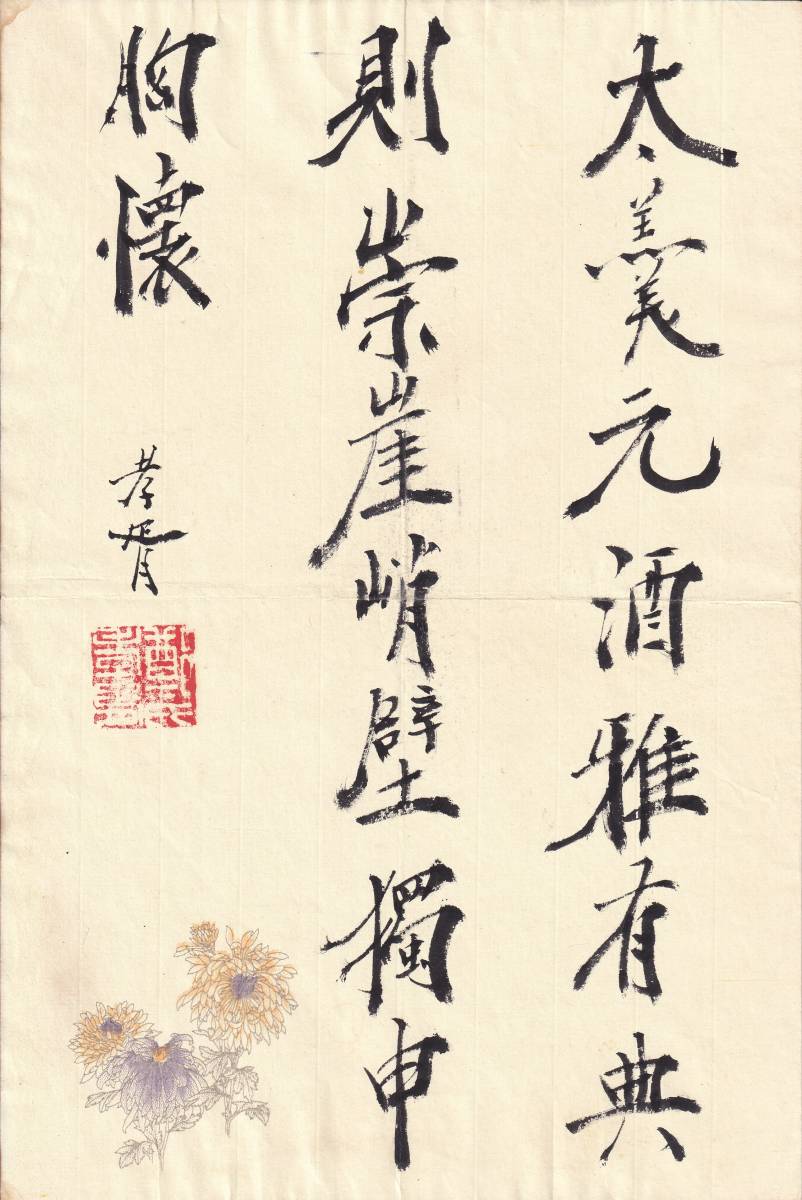 太羹元酒雅有典
則崇崖峭壁獨申
胸懷
孝胥